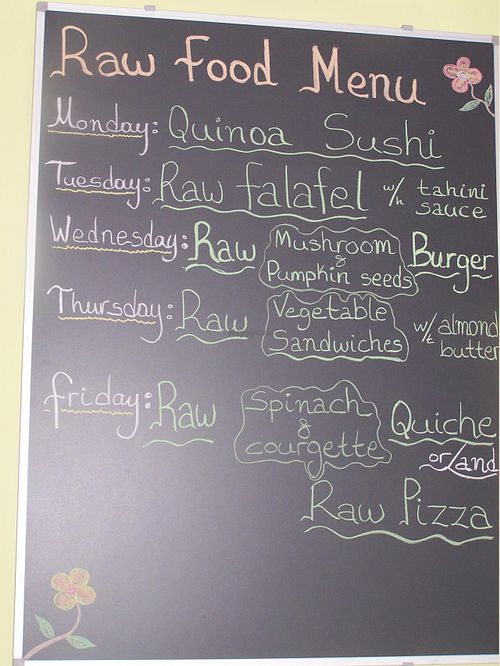 Raw Food Menu
Monday: Quinoa Sushi
Tuesday: Raw falafel w/h tahini sauce
Wednesday: Raw Mushroom & Pumpkin seeds Burger
Thursday: Raw Vegetable Sandwiches w/t almond butter
Friday: Raw Spinach & courgette Quiche
or/and
Raw Pizza